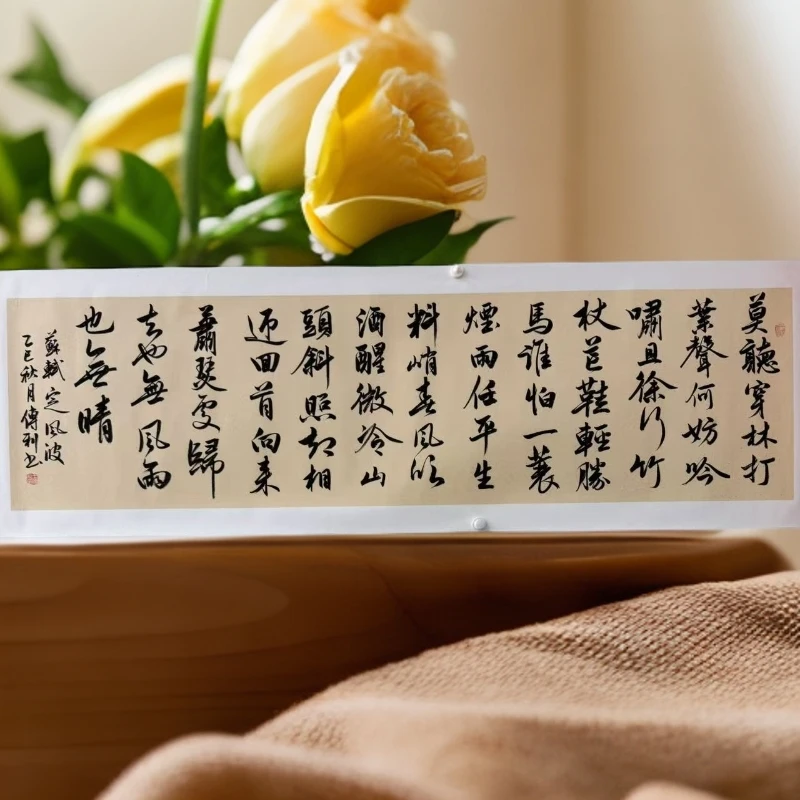 莫聽穿林打
葉聲何妨吟
嘯且徐行竹
杖芒鞋輕勝
馬谁怕一蓑
煙雨任平生
料峭春風吹
酒醒微冷山
頭斜照却相
迎回首向来
蕭瑟處歸
去也無風雨
也無晴
蘇軾定風波
乙巳秋月傳利书